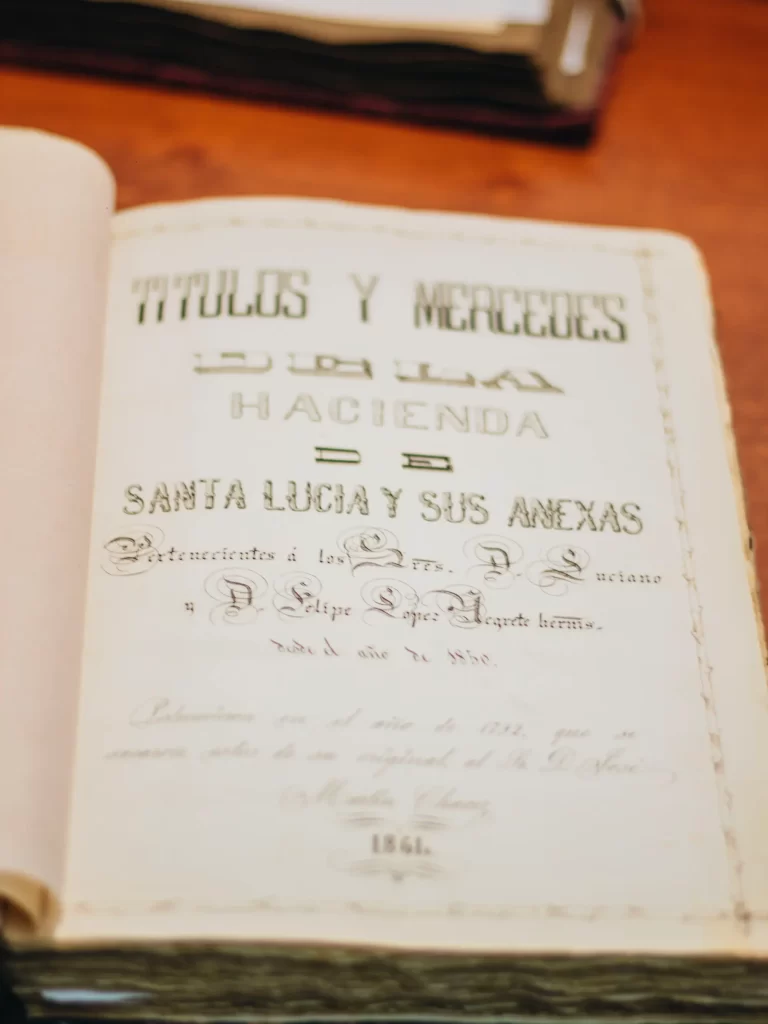 TITULOS Y MERCEDES
DE LA
HACIENDA
DE
SANTA LUCIA Y SUS ANEXAS
Pertenecientes á los Sres. D. Luciano
y D. Felipe Lopez Negrete herms.
desde el año de 1850.
en el año de 1792, que se
antes de su original, el Sr. D. José
Martin Chavez
1861.